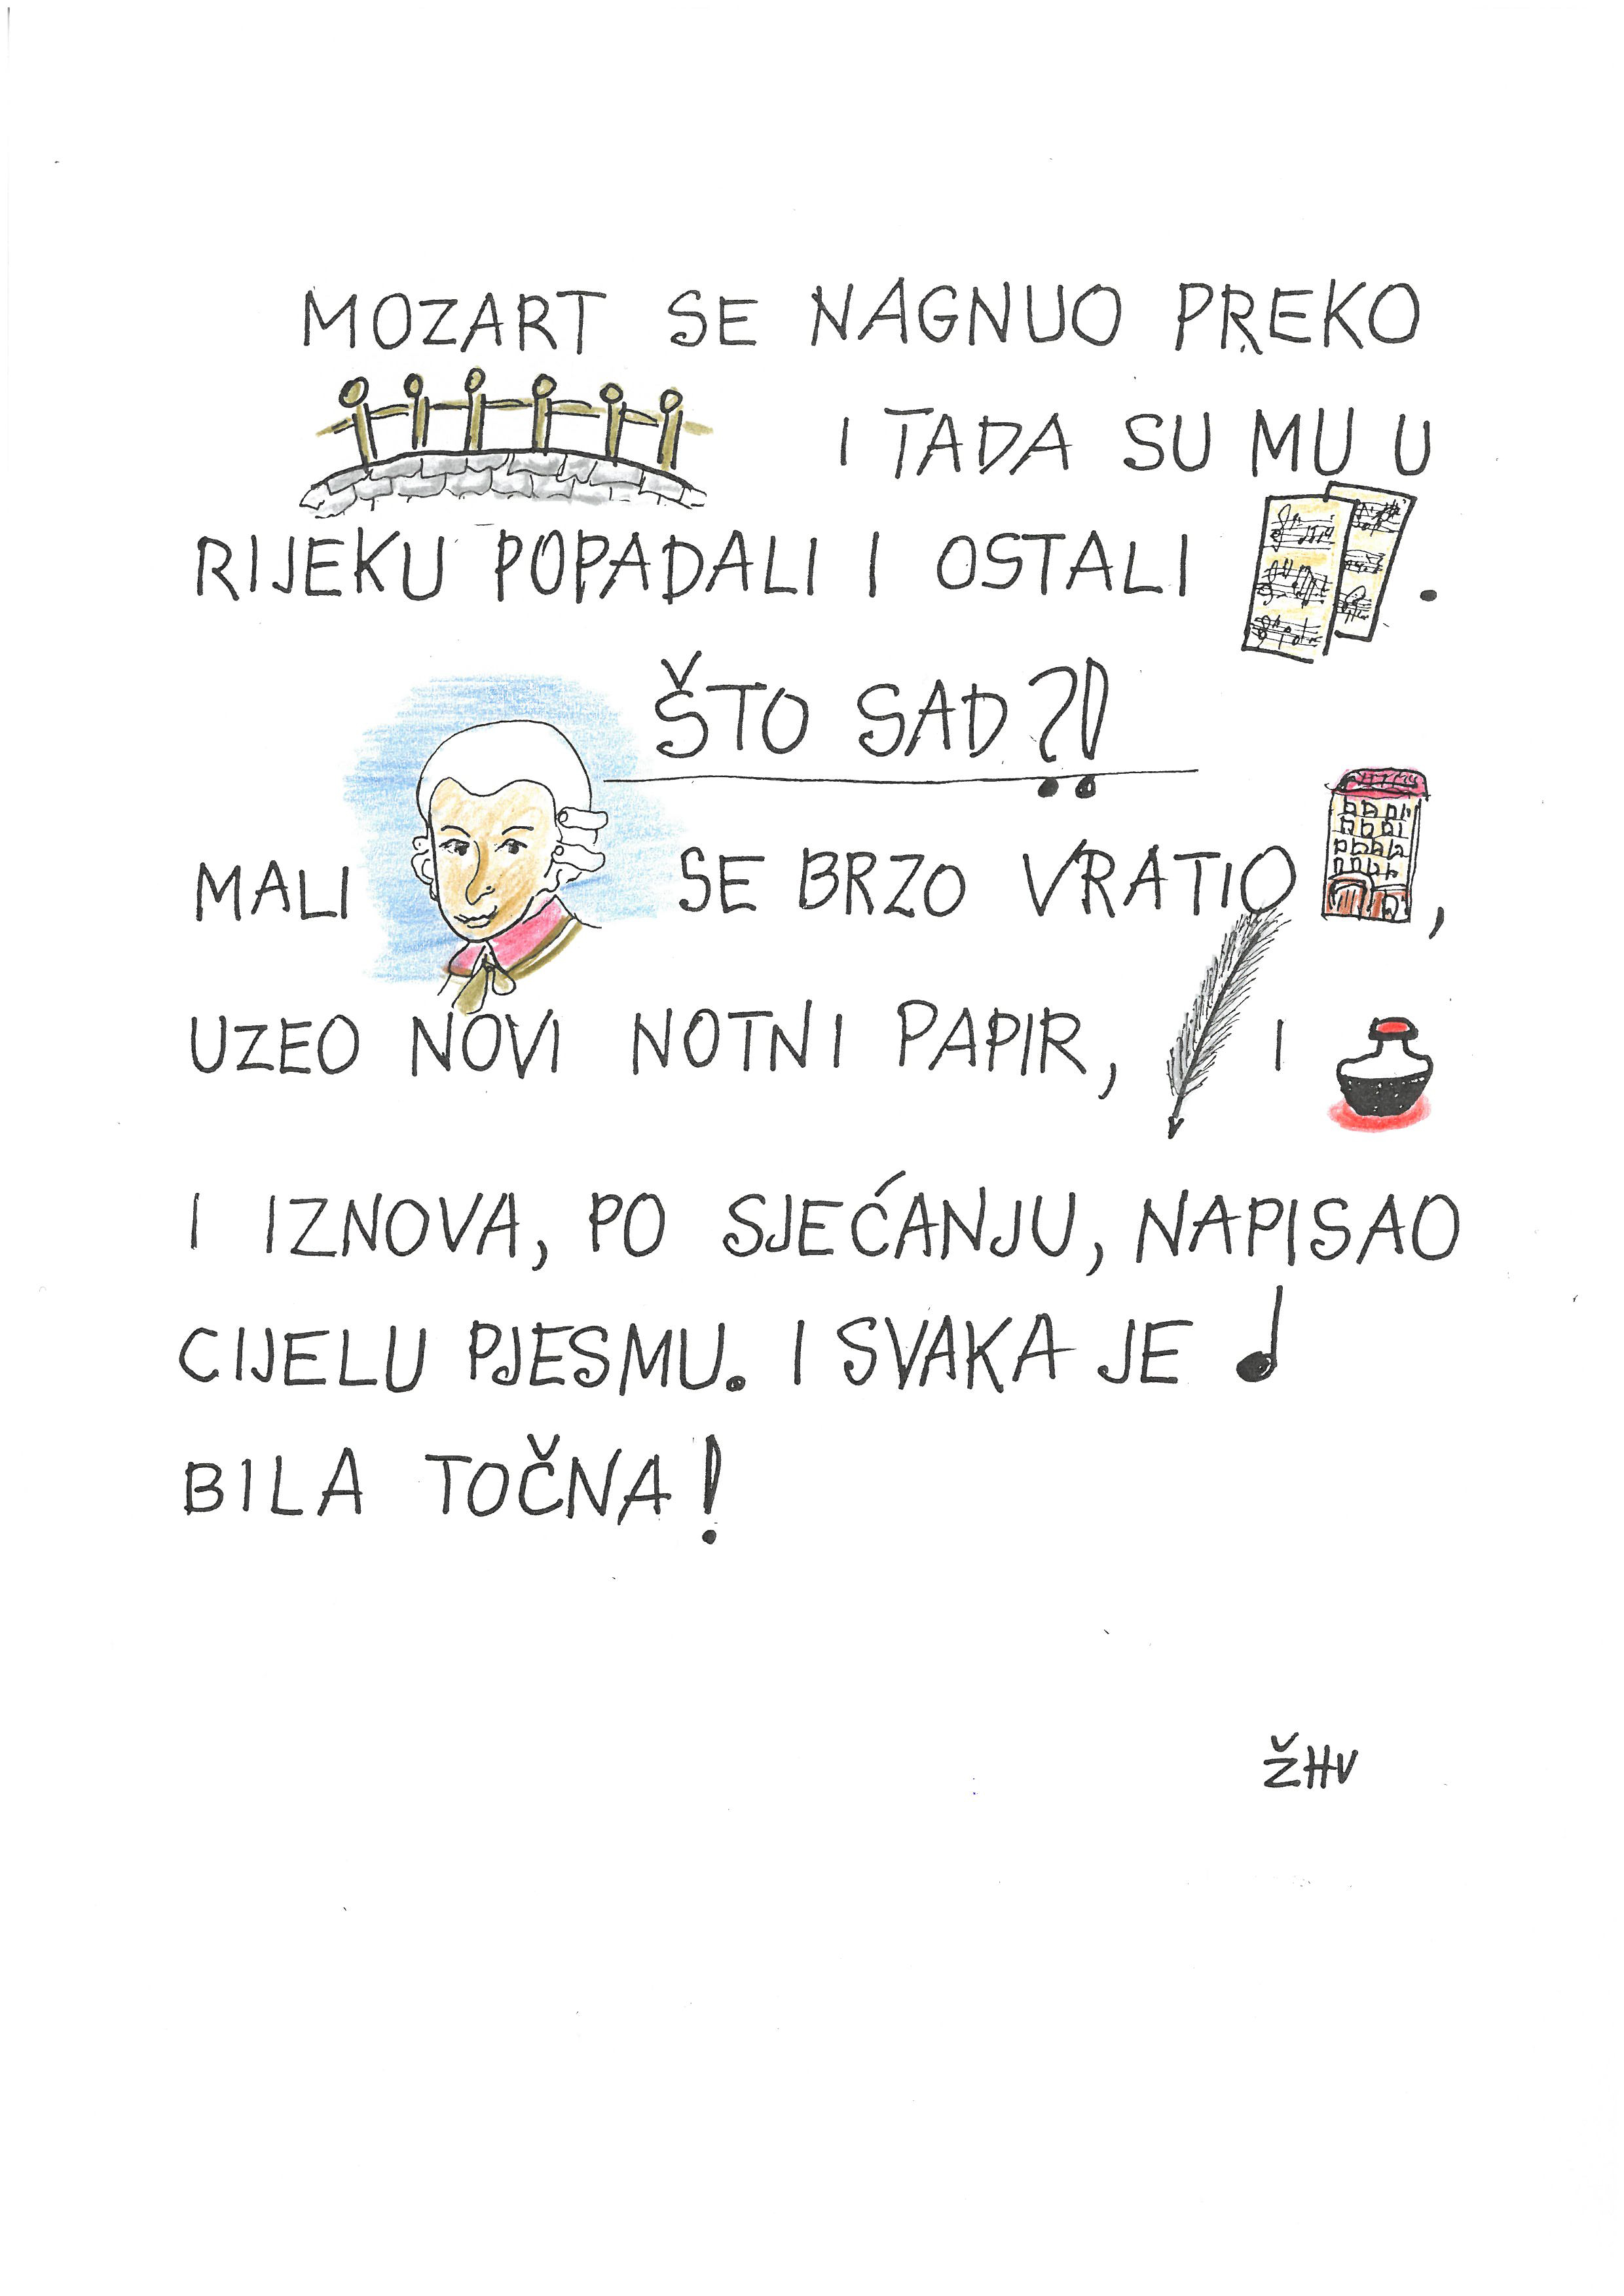 MOZART SE NAGNUO PREKO
I TADA SU MU U
RIJEKU POPADALI I OSTALI .
ŠTO SAD?!
MALI SE BRZO VRATIO ,
UZEO NOVI NOTNI PAPIR, I
I IZNOVA, PO SJEĆANJU, NAPISAO
CIJELU PJESMU. I SVAKA JE
BILA TOČNA!
ŽHV